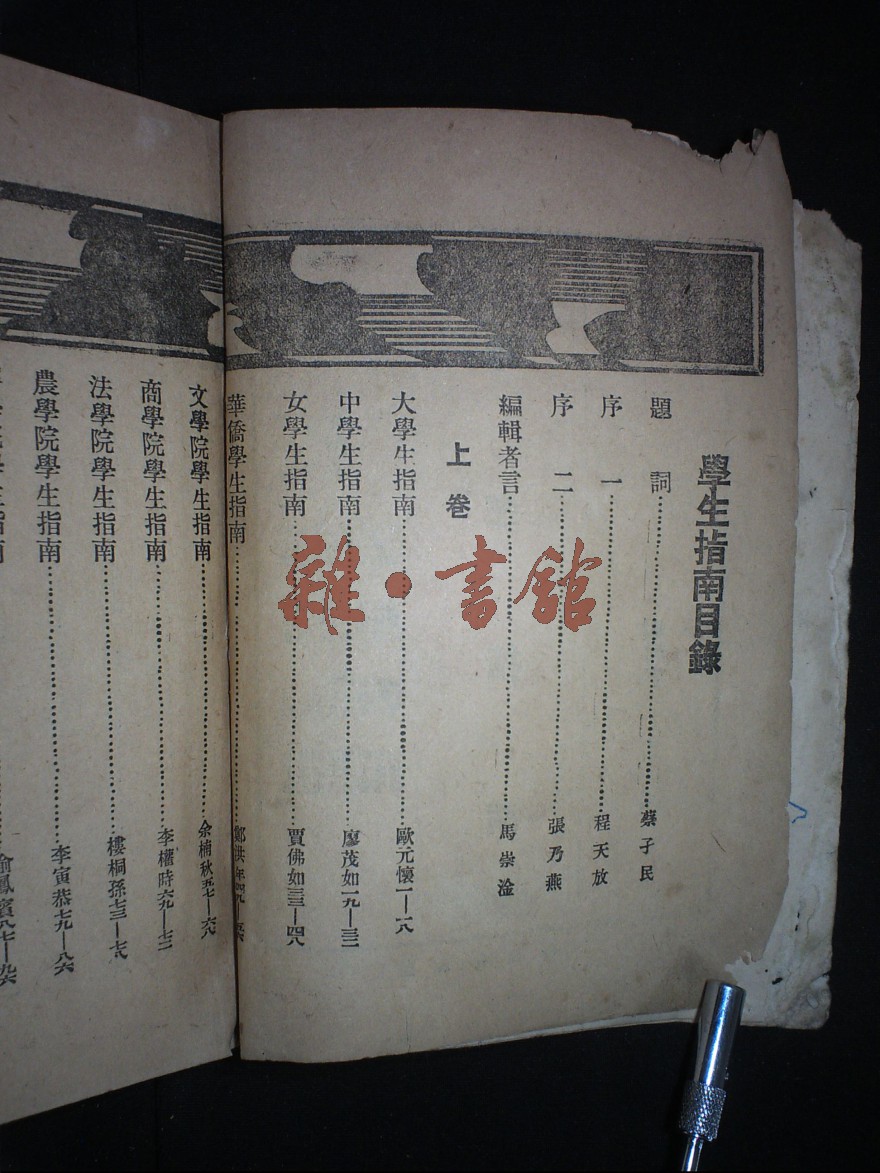 學生指南目錄
題詞……蔡孑民
序一……程天放
序二……張乃燕
編輯者言……馬崇淦
上卷
大學生指南……歐元懷一—一八
中學生指南……廖茂如一九—三二
女學生指南……賈佛如三三—四八
華僑學生指南……鄭洪年四九—五六
文學院學生指南……余楠秋五七—六八
商學院學生指南……李權時六九—七二
法學院學生指南……樓桐孫七三—七八
農學院學生指南……李寅恭七九—八六
學生指南……俞鳳賓八七—九六
雜·書館